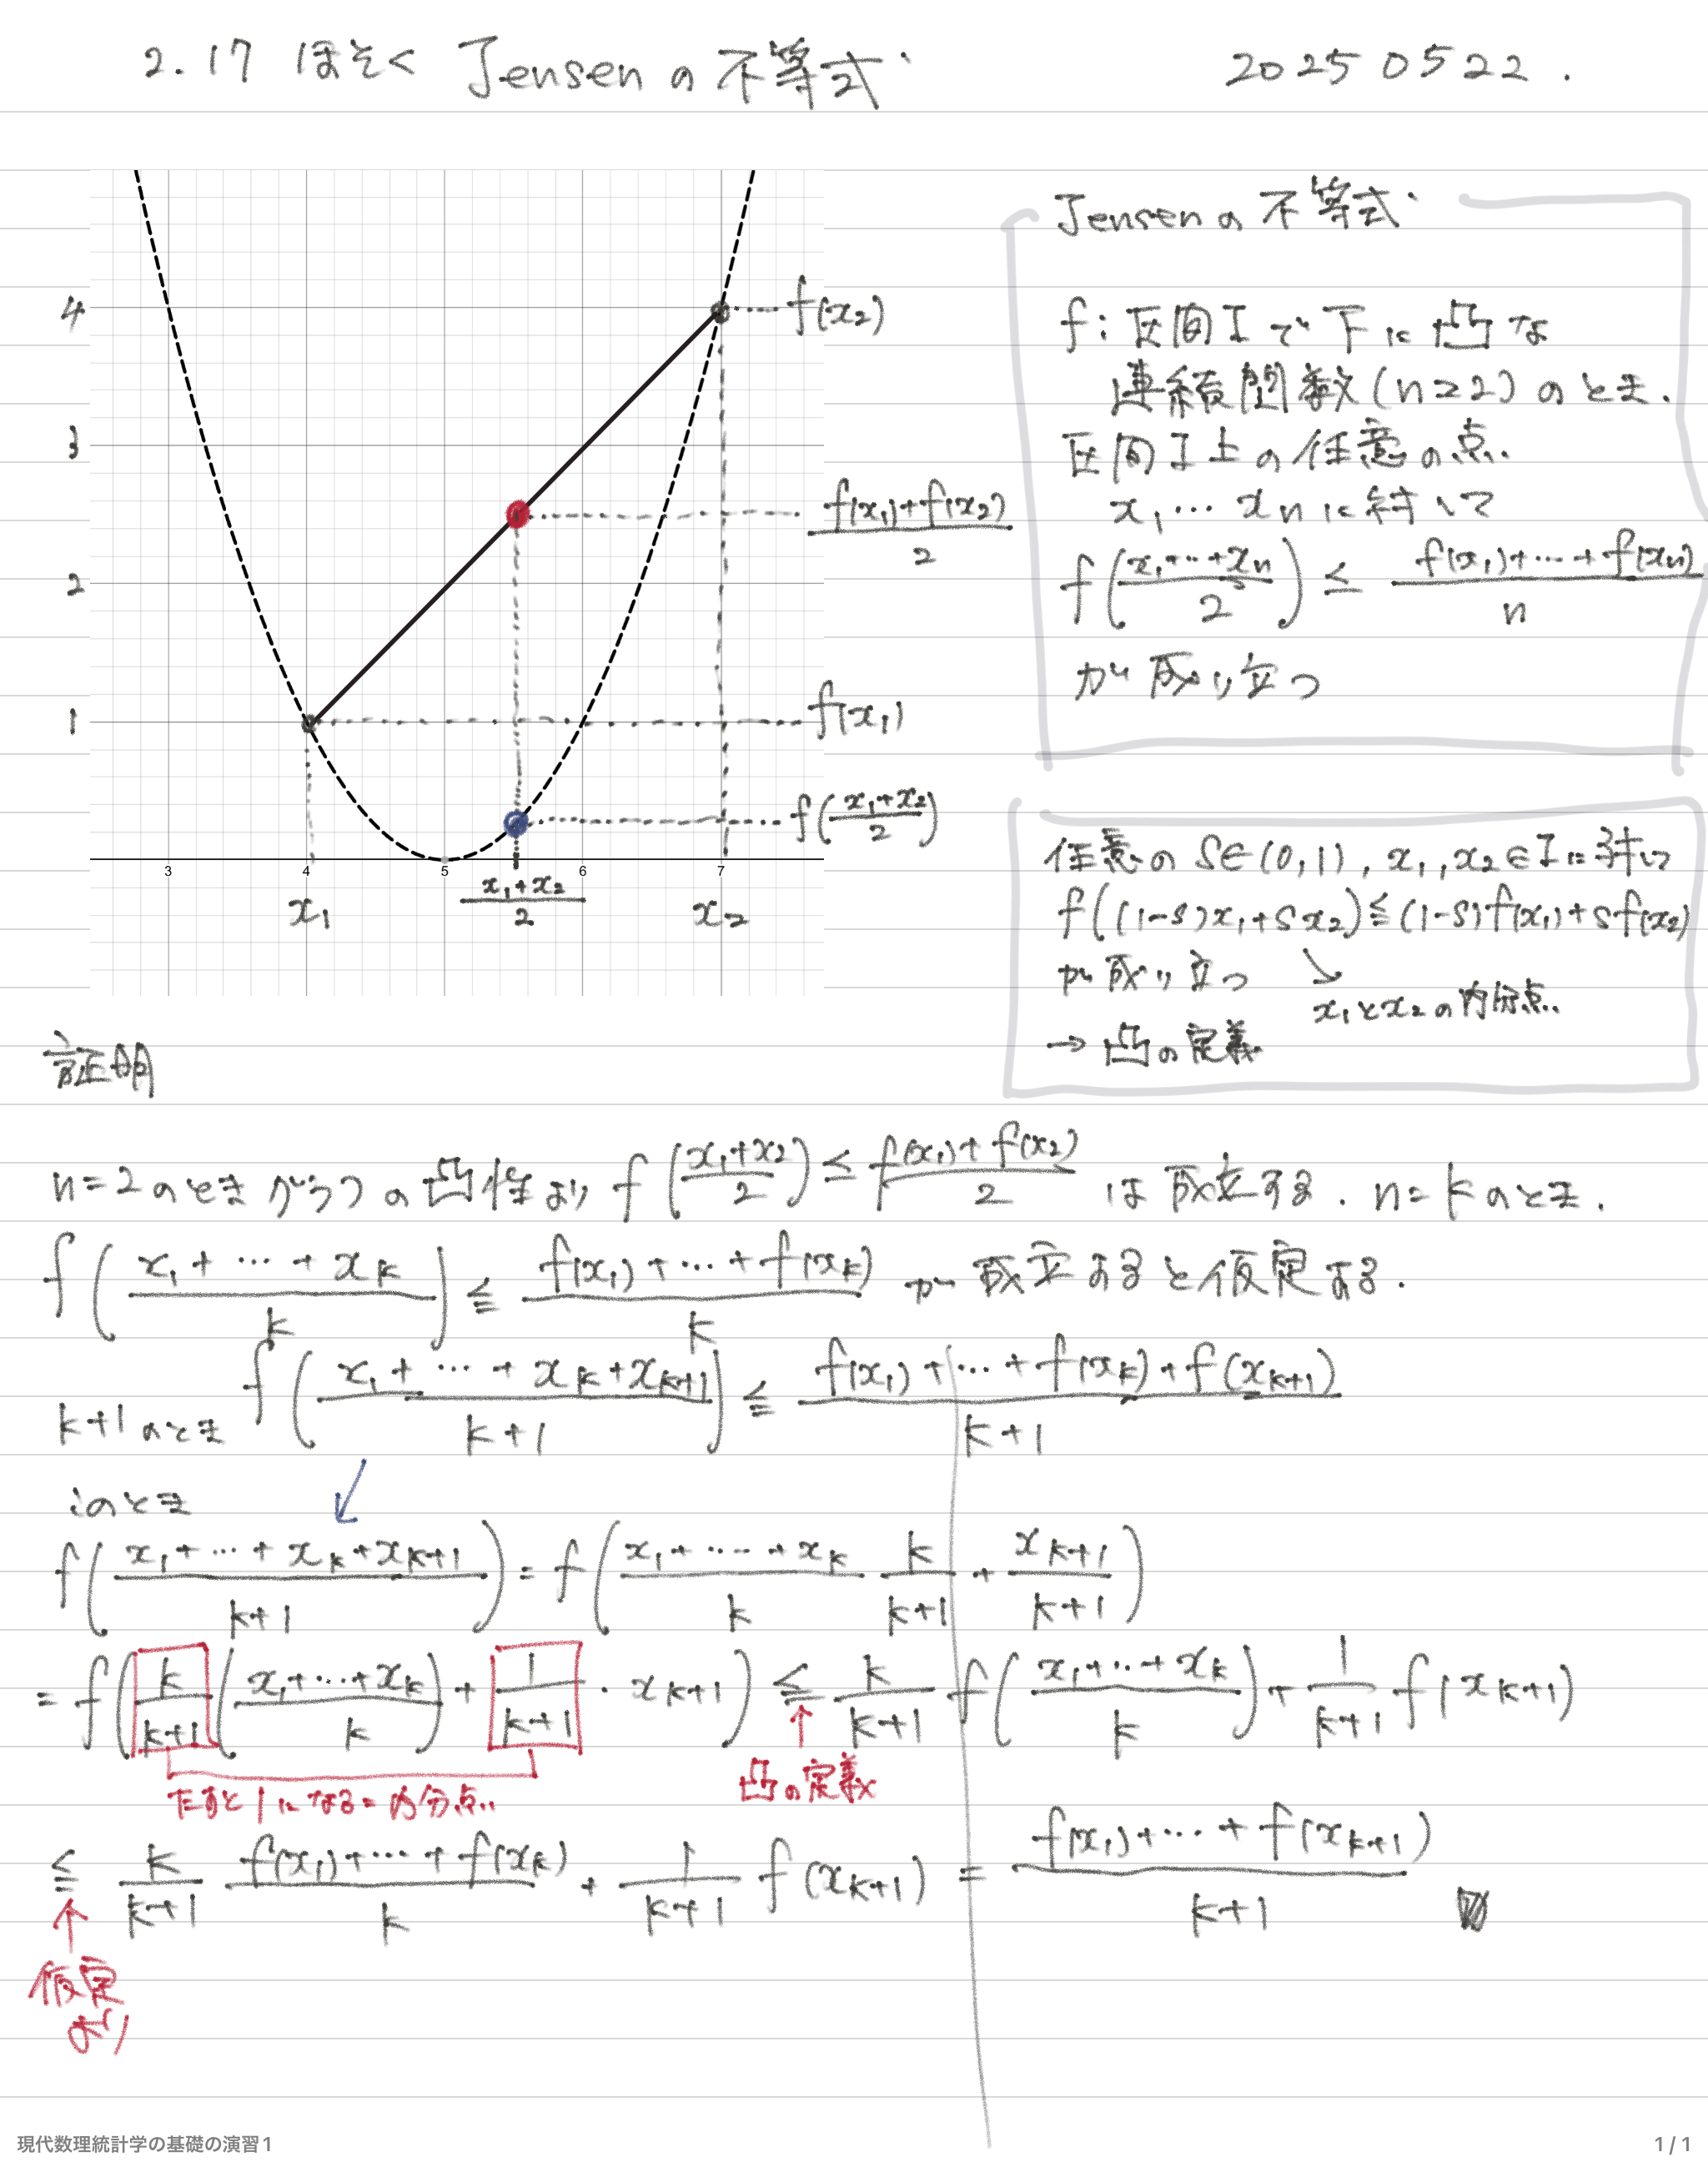 2.17 ほそく Jensenの不等式
20250522.
4
3
2
1
3 4 5 6 7
x₁
(x₁+x₂)/2
x₂
f(x₂)
(f(x₁)+f(x₂))/2
f(x₁)
f((x₁+x₂)/2)
Jensenの不等式
f: 区間Iで下に凸な
連続関数(n≥2)のとき.
区間I上の任意の点
x₁…xnに対して
f((x₁+…+xn)/2) ≤ (f(x₁)+…+f(xn))/n
が成り立つ
任意のS∈(0,1), x₁,x₂∈Iに対して
f((1-S)x₁+Sx₂)≦(1-S)f(x₁)+Sf(x₂)
が成り立つ ↘
x₁とx₂の内分点
→ 凸の定義
証明
n=2のときグラフの凸性より f((x₁+x₂)/2) ≤ (f(x₁)+f(x₂))/2 は成立する. n=kのとき.
f((x₁+…+xk)/k) ≦ (f(x₁)+…+f(xk))/k が成立すると仮定する.
k+1のとき f((x₁+…+xk+xk+1)/(k+1)) ≦ (f(x₁)+…+f(xk)+f(xk+1))/(k+1)
このとき ↙
f((x₁+…+xk+xk+1)/(k+1)) = f((x₁+……+xk)/k k/(k+1) + xk+1/(k+1))
= f(k/(k+1) ((x₁+…+xk)/k) + 1/(k+1) · xk+1) ≦ k/(k+1) f((x₁+…+xk)/k) + 1/(k+1) f(xk+1)
たすと1になる=内分点
↑
凸の定義
≦ k/(k+1) (f(x₁)+…+f(xk))/k + 1/(k+1) f(xk+1) = (f(x₁)+…+f(xk+1))/(k+1)
↑
仮定
より
現代数理統計学の基礎の演習1
1 / 1